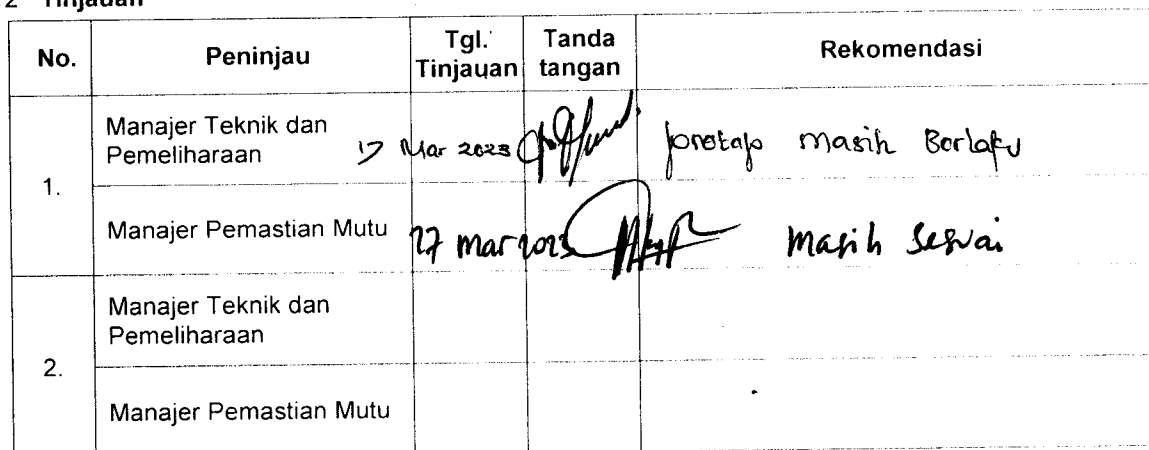 2 Tinjauan
No. Peninjau Tgl. Tinjauan Tanda tangan Rekomendasi
1.
Manajer Teknik dan
Pemeliharaan Mar 2023 protap masih Berlaku
Manajer Pemastian Mutu 27 Mar 2023 Masih Sesuai
2.
Manajer Teknik dan
Pemeliharaan
Manajer Pemastian Mutu